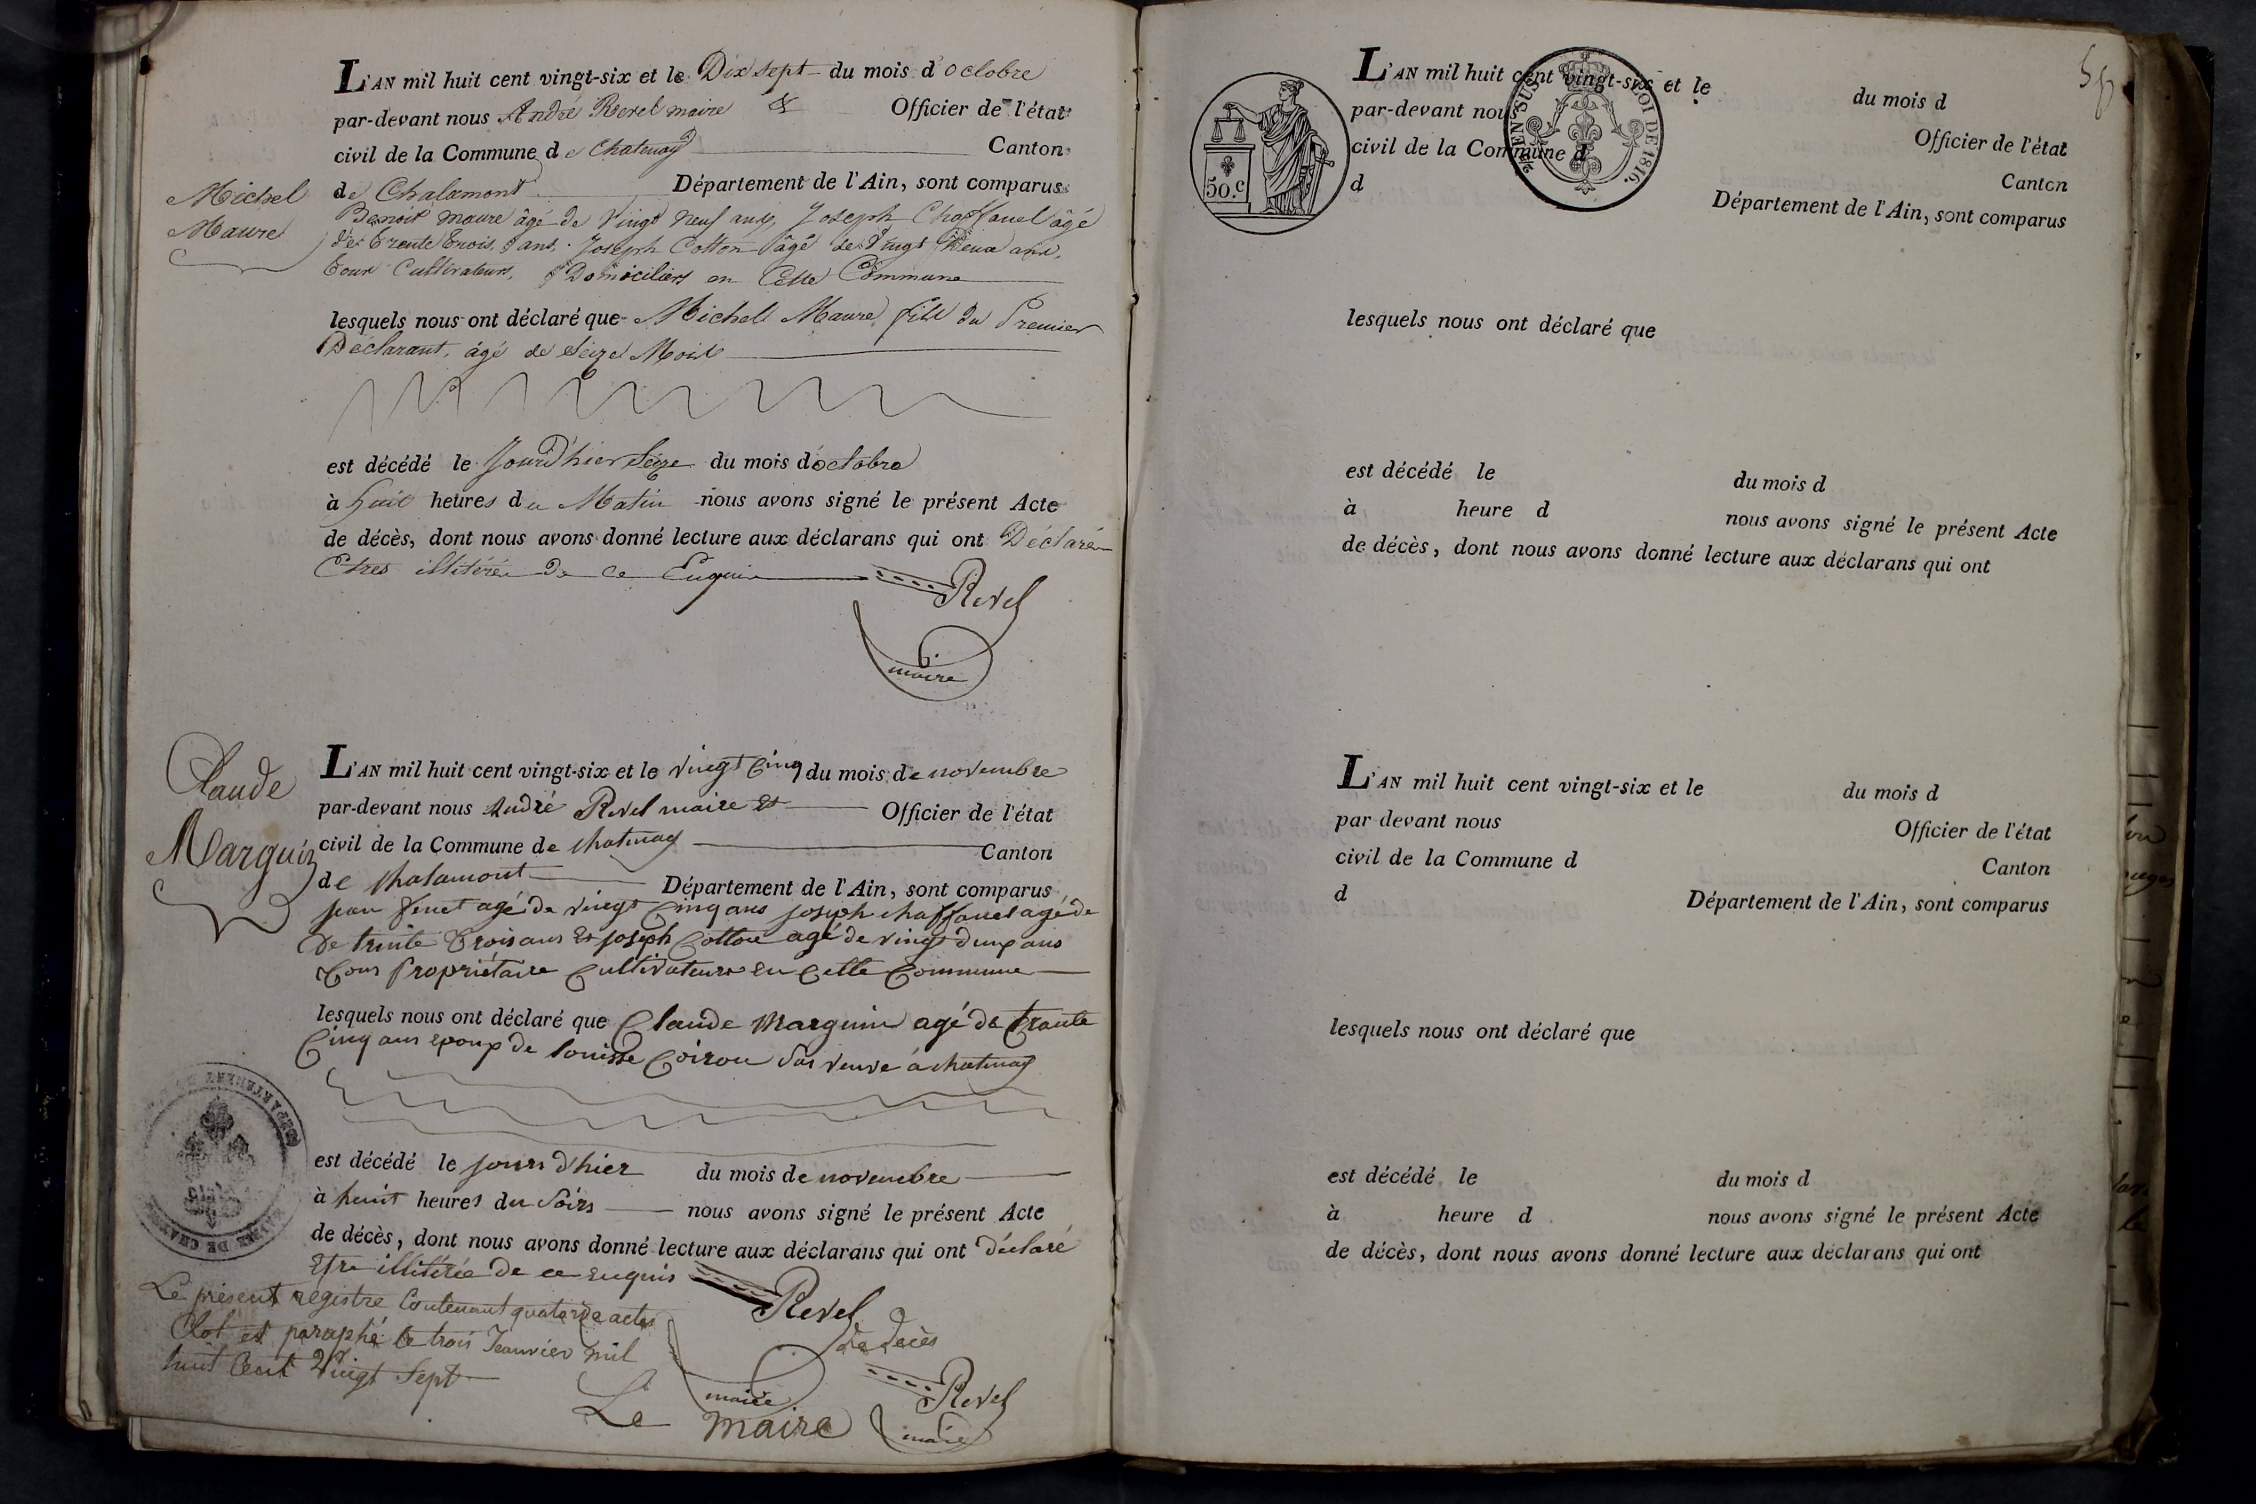 L'AN mil huit cent vingt-six et le Dix sept du mois d'octobre
par-devant nous André Revel maire & Officier de l'état
civil de la Commune de Chatenay Canton
Michel
Maure
de Chalamont Département de l'Ain, sont comparus
Benoit maure âgé de Vingt neuf ans, Joseph Chaffanel âgé
de trente trois ans. Joseph Cotton âgé de Vingt Deux ans,
tous Cultivateurs, Domiciliers en Cette Commune
lesquels nous ont déclaré que Michell Maure fils du Premier
Déclarant, âgé de Seize Mois
est décédé le Jourd'hier Seize du mois d'octobre
à huit heures du Matin nous avons signé le présent Acte
de décès, dont nous avons donné lecture aux déclarans qui ont Déclaré
Etres illitéré De Ce Enquis
Revel
maire
Claude
Marguin
L'AN mil huit cent vingt-six et le vingt Cinq du mois de novembre
par-devant nous André Revel maire et Officier de l'état
civil de la Commune de chatenay Canton
de chalamont Département de l'Ain, sont comparus
jean agé de vingt Cinq ans joseph chaffanel agé de
de trente trois ans et joseph Cotton agé de vingt deux ans
tous propriétaire Cultivateurs en Cette Commune
lesquels nous ont déclaré que Claude Marguin agé de trante
Cinq ans epoux de louisse Coiron Sas veuve à chatenay
est décédé le jours d'hier du mois de novembre
à huit heures du Soirs nous avons signé le présent Acte
de décès, dont nous avons donné lecture aux déclarans qui ont déclaré
Etre illitérée de ce enquis
Revel
maire
Le présent registre Contenant quatorze actes
de decès
Clot et paraphé le trois Jeanvier mil
huit Cent Vingt Sept
Le maire
Revel
maire
L'AN mil huit cent vingt-six et le du mois d
par-devant nous Officier de l'état
civil de la Commune d Canton
d Département de l'Ain, sont comparus
50.c
EN SUS LOI DE 1816.
lesquels nous ont déclaré que
est décédé le du mois d
à heure d nous avons signé le présent Acte
de décès, dont nous avons donné lecture aux déclarans qui ont
L'AN mil huit cent vingt-six et le du mois d
par devant nous Officier de l'état
civil de la Commune d Canton
d Département de l'Ain, sont comparus
lesquels nous ont déclaré que
est décédé le du mois d
à heure d nous avons signé le présent Acte
de décès, dont nous avons donné lecture aux déclarans qui ont